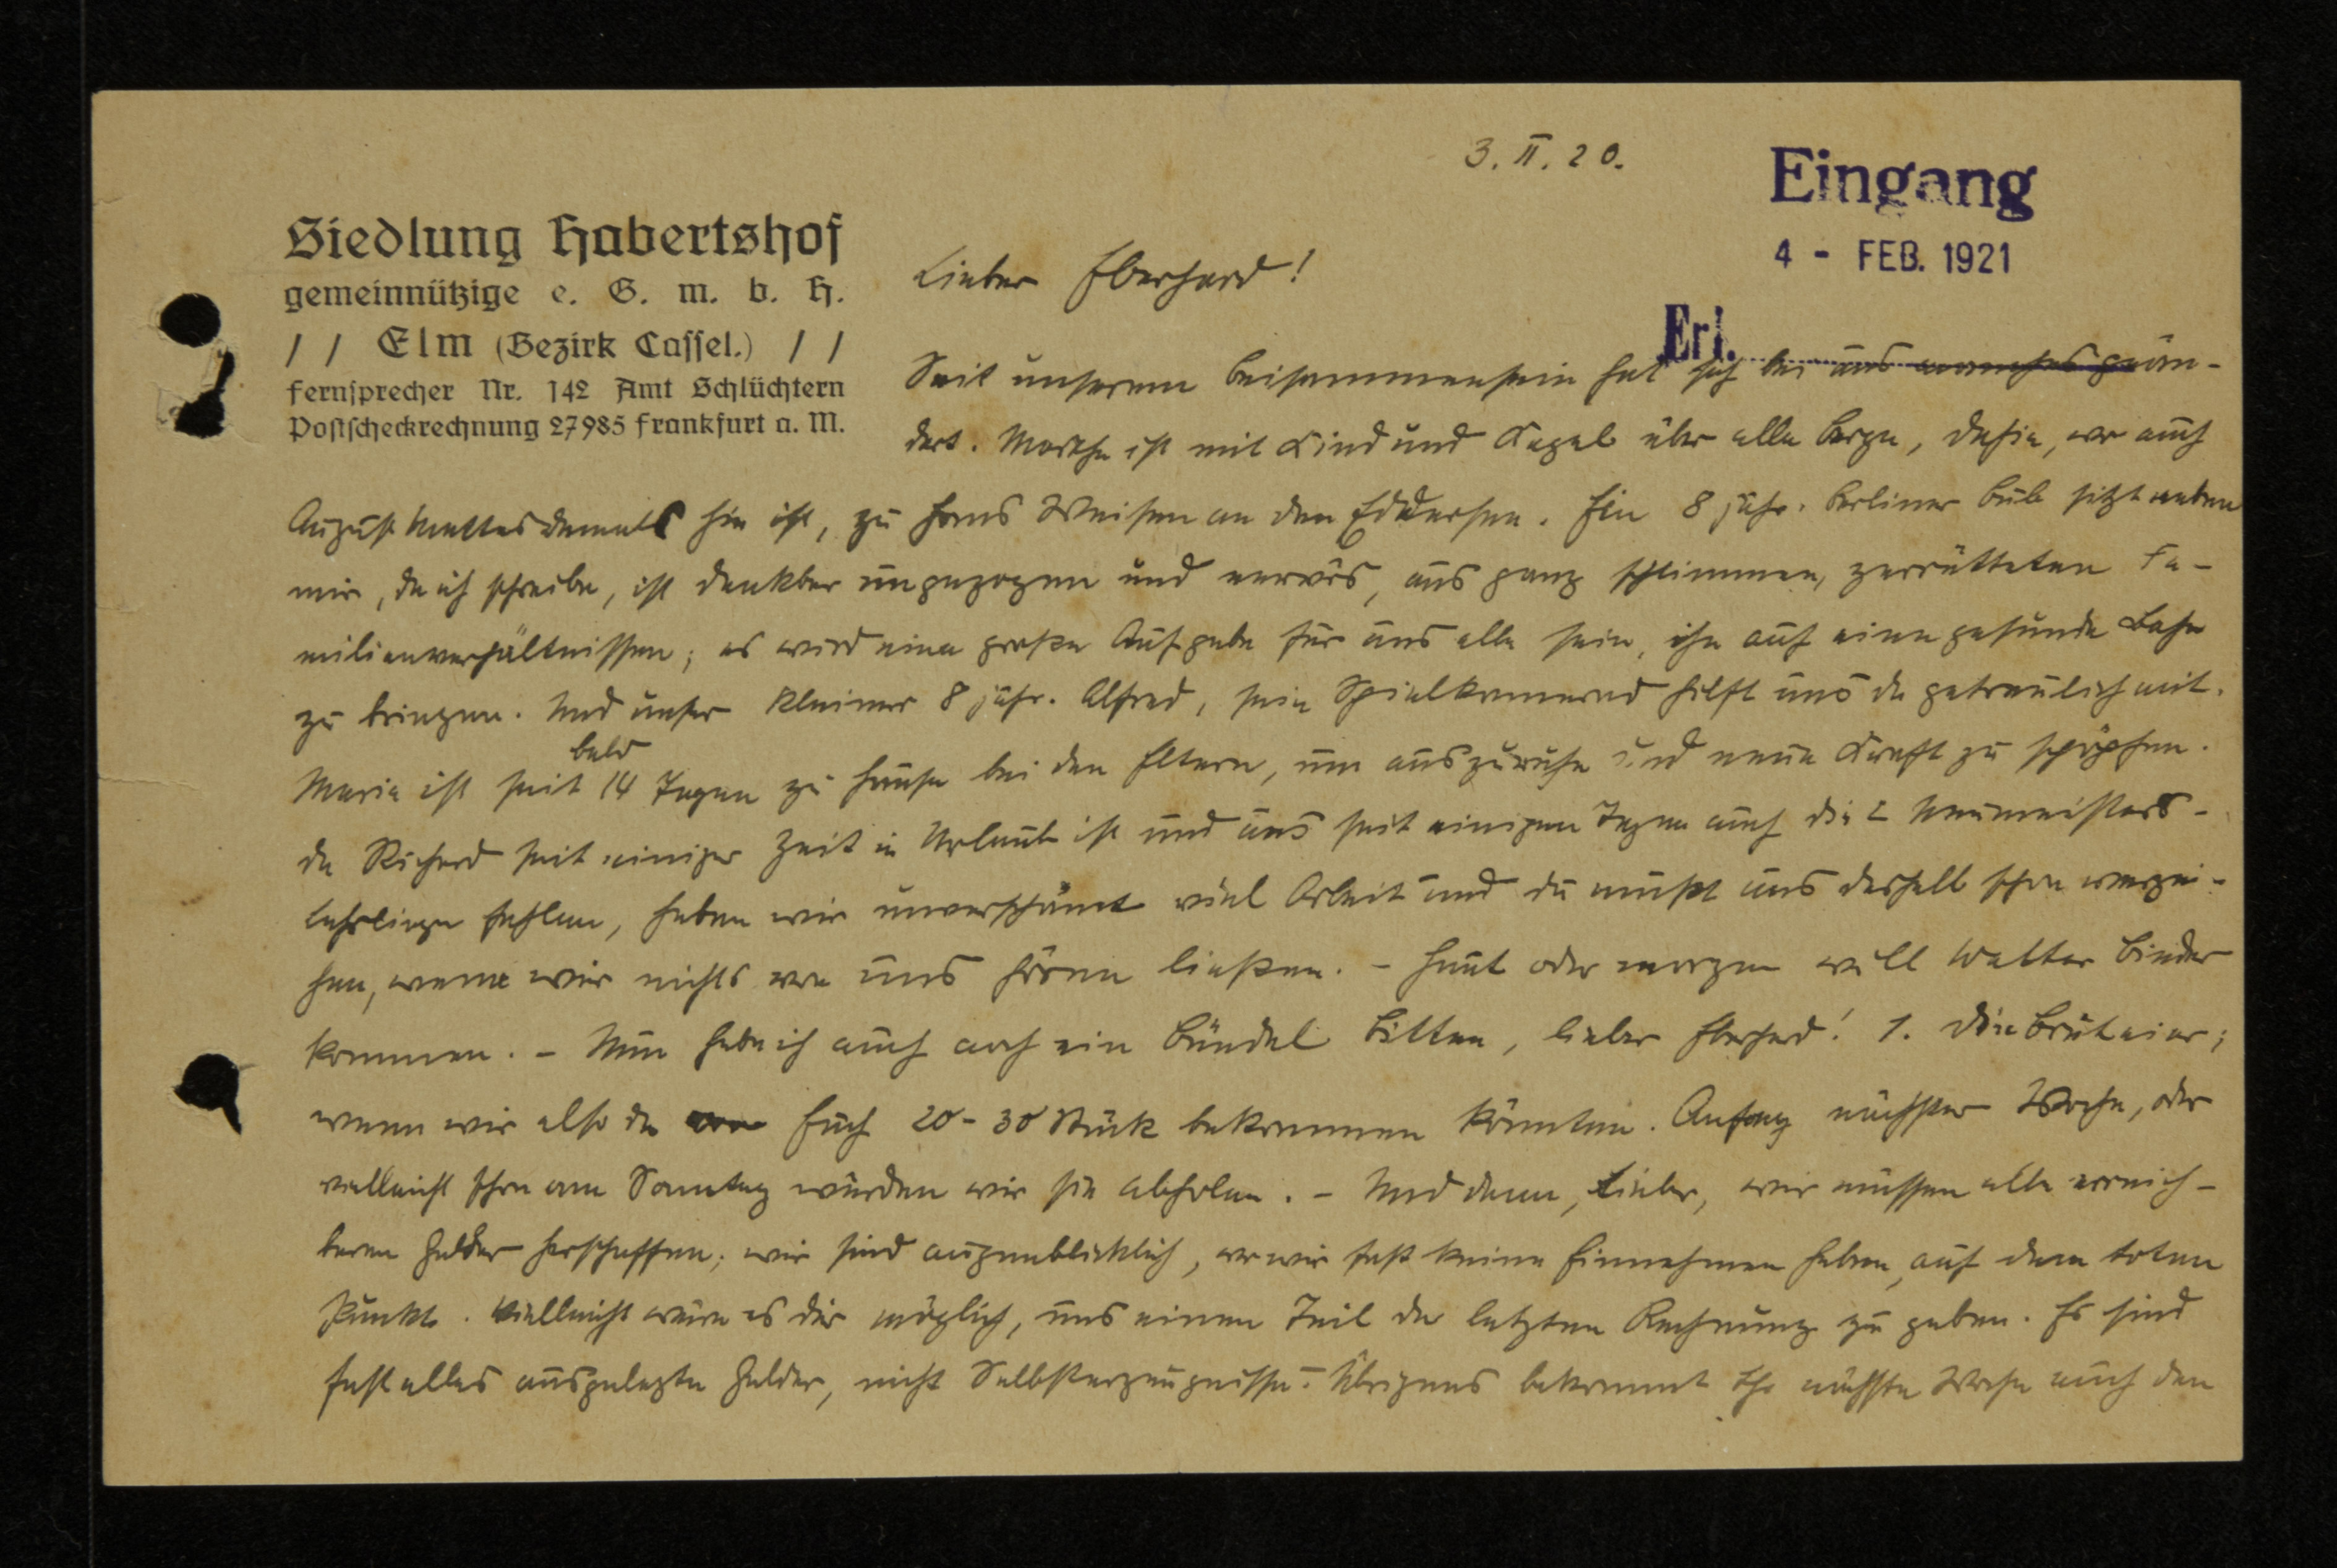 3. II. 20.
Eingang
4 - FEB. 1921
Erl.
Siedlung Habertshof
gemeinnützige e. G. m. b. H.
// Elm (Bezirk Cassel.) //
Fernsprecher Nr. 142 Amt Schlüchtern
Postscheckrechnung 27985 Frankfurt a. M.
Lieber Eberhard!
Seit unserem Beisammensein hat sich bei uns manches geän-
dert. Marthe ist mit Kind und Kegel über alle Berge, dahin, wo auch
August damals hin ist, zu Hans Weisen an den Eddersee. Ein 8 jähr. Berliner Bub sitzt neben
mir, da ich schreibe, ist denkbar ungezogen und nervös, aus ganz schlimmen, zerrütteten Fa-
milienverhältnissen; es wird eine große Aufgabe für uns alle sein, ihn auf eine gesunde Bahn
zu bringen. Und unser kleiner 8 jähr. Alfred, sein Spielkamerad hilft uns da getreulich mit.
Maria ist seit bald 14 Tagen zu Hause bei den Eltern, um auszuruhen und neue Kraft zu schöpfen.
da Richard seit einiger Zeit in Urlaub ist und uns seit einigen Tagen auch die 2 Neumeisters-
lehrlinge fehlen, haben wir unverschämt viel Arbeit und du mußt uns deshalb schon verzei-
hen, wenn wir nichts von uns hören ließen. - Heut oder morgen will Walter Binder
kommen. - Nun habe ich auch noch ein Bündel Bitten, lieber Eberhard! 1. Die Bruteier;
wenn wir also da von Euch 20-30 Stück bekommen könnten. Anfang nächster Woche, oder
vielleicht schon am Sonntag würden wir sie abholen. - Und dann, Lieber, wir müssen alle erreich-
baren Gelder herschaffen; wir sind augenblicklich, wo wir fast keine Einnahmen haben, auf dem toten
Punkt. Vielleicht wäre es dir möglich, uns einen Teil der letzten Rechnung zu geben. Es sind
fast alles ausgelegte Gelder, nicht Selbsterzeugnisse. - Übrigens bekommt Ihr nächste Woche auch den